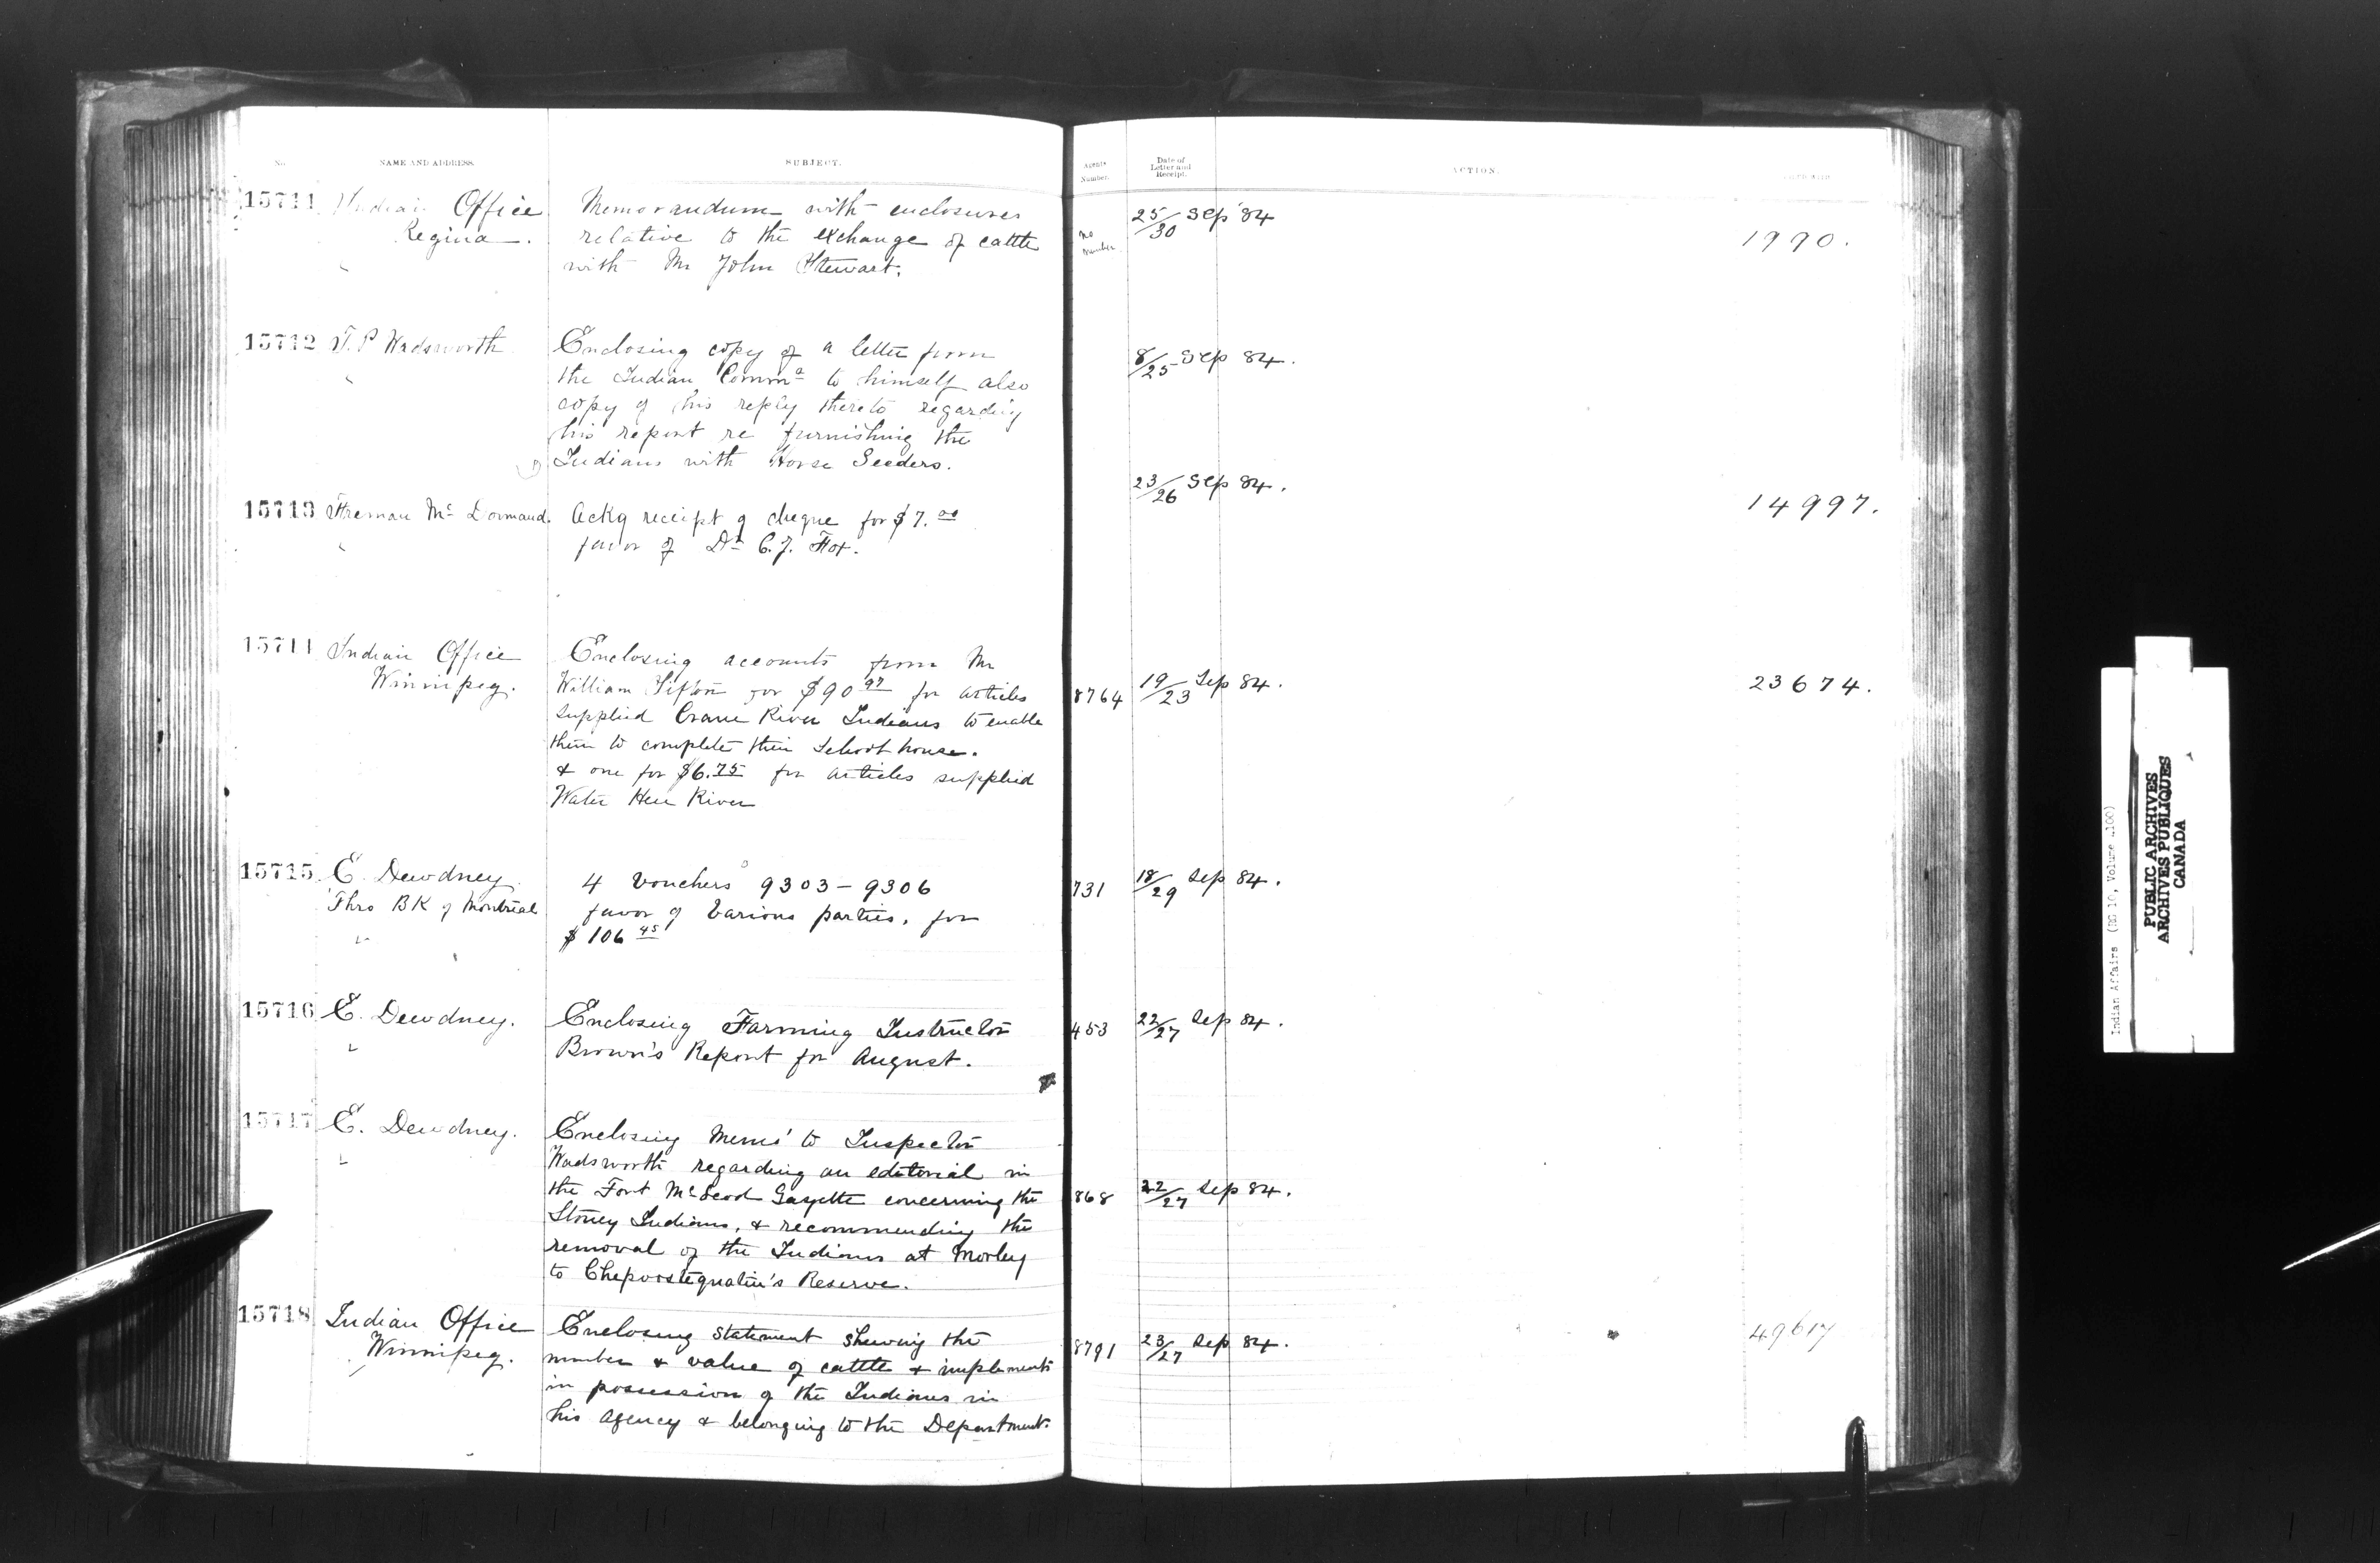 No. NAME AND ADDRESS. SUBJECT. Agents Number. Date of Letter and Receipt. ACTION.
15711 Indian Office Memorandum with enclosures no number 25/30 Sep 84
Regina. relative to the exchange of cattle 1990.
with Mr John Stewart.
15712 T. P Wadsworth Enclosing copy of a letter from 8/25 Sep 84.
the Indian Commr to himself also
copy of his reply thereto regarding
his report re furnishing the
Indians with Horse Seeders.
23/26 Sep 84.
15713 Freeman Mc Dormand. Ackg receipt of cheque for $7.00 14997.
favor of Dr C. J. Fox.
15714 Indian Office Enclosing accounts from Mr
Winnipeg. William Sifton for $90 97 for articles 8764 19/23 Sep 84. 23674.
supplied Crane River Indians to enable
them to complete their School house.
& one for $6.75 for articles supplied
Water Hen River
15715 E. Dewdney 4 Vouchers 9303-9306 731 18/29 Sep 84.
Thro BK of Montreal favor of Various parties, for
$106 45
15716 E. Dewdney. Enclosing Farming Instructor 453 22/27 Sep 84.
Brown's Report for August.
15717 E. Dewdney. Enclosing Memo to Inspector
Wadsworth regarding an editorial in
the Fort McLeod Gazette concerning the 868 22/27 Sep 84.
Stoney Indians, & recommending the
removal of the Indians at Morley
to Chepoostequatin's Reserve.
15718 Indian Office Enclosing statement shewing the 8791 23/27 Sep 84. 49617
Winnipeg. number & value of cattle & implements
in possession of the Indians in
his agency & belonging to the Department.
Indian Affairs (RG 10, Volume
PUBLIC ARCHIVES
ARCHIVES PUBLIQUES
CANADA